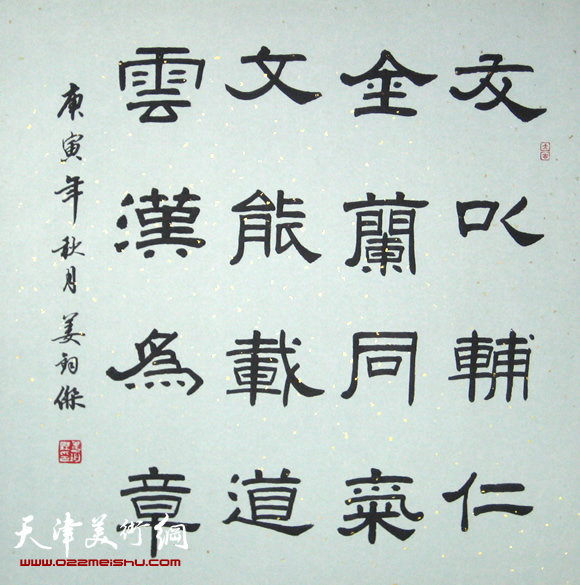 友以輔仁
金蘭同氣
文能載道
雲漢為章
庚寅年秋月姜鈞傑
天津美術網
www.022meishu.com